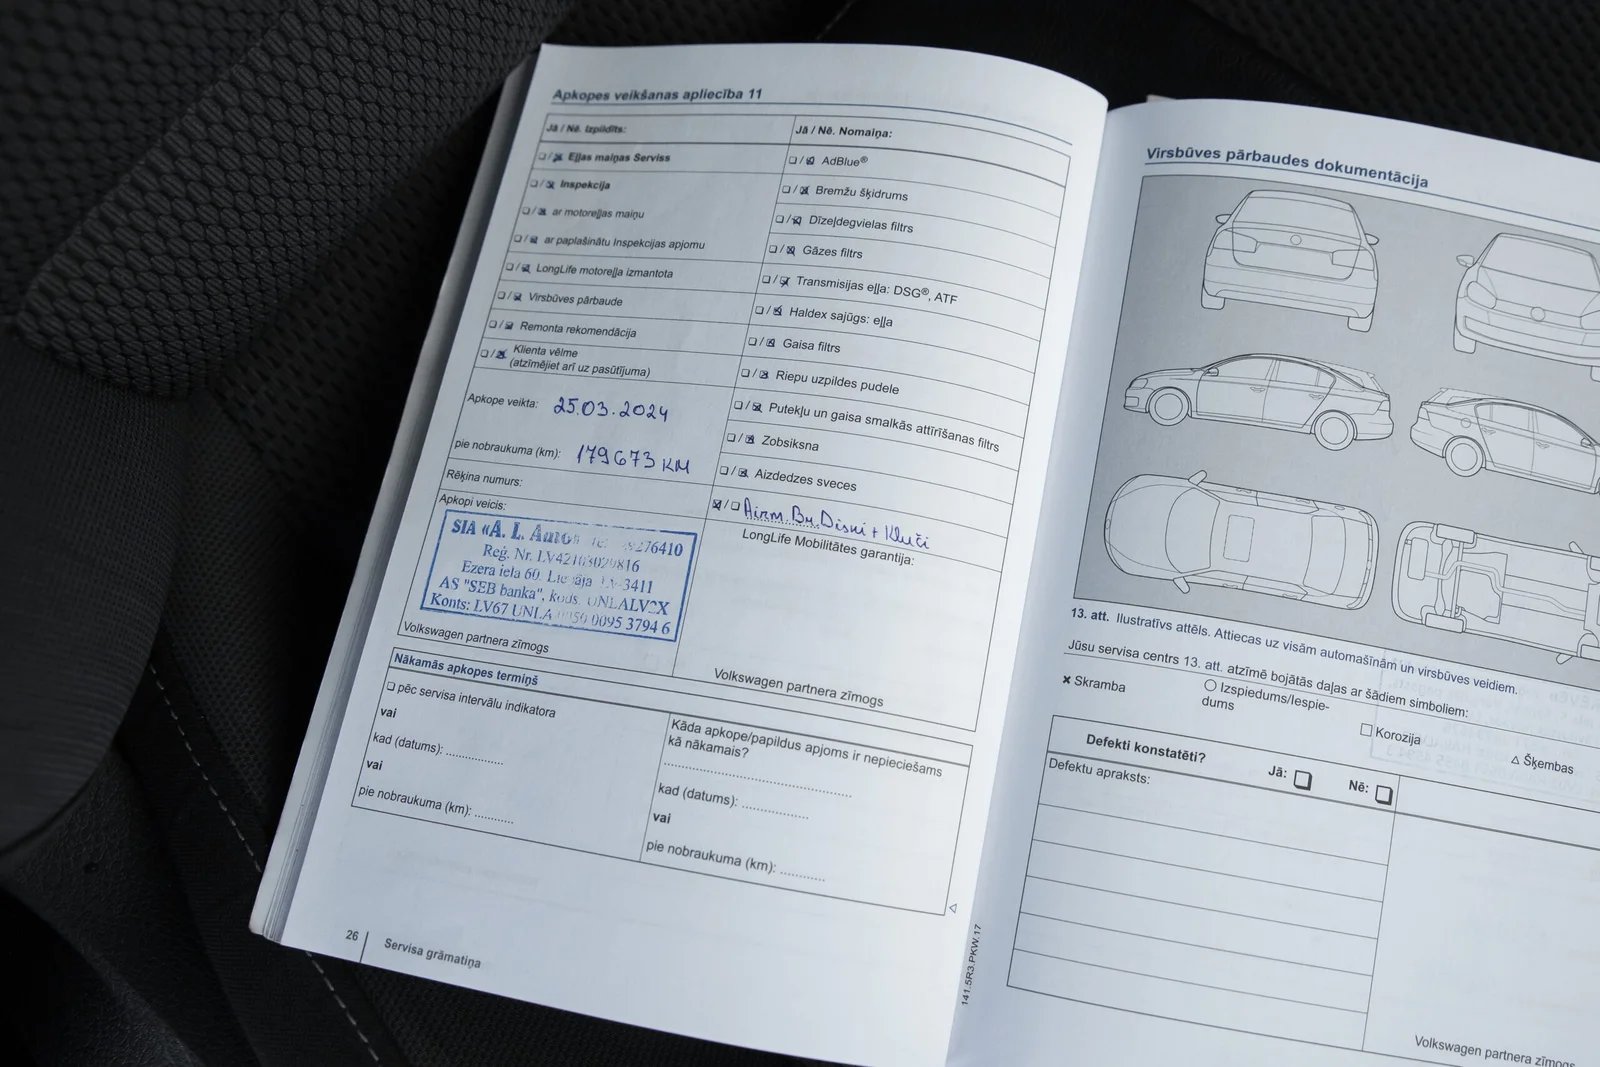 Apkopes veikšanas apliecība 11
Jā / Nē. Izpildīts:
❏ / ☒ Eļļas maiņas Serviss
❏ / ☒ Inspekcija
❏ / ☒ ar motoreļļas maiņu
❏ / ☒ ar paplašinātu Inspekcijas apjomu
❏ / ☒ LongLife motoreļļa izmantota
❏ / ☒ Virsbūves pārbaude
❏ / ☒ Remonta rekomendācija
❏ / ☒ Klienta vēlme
(atzīmējiet arī uz pasūtījuma)
Apkope veikta: 25.03.2024
pie nobraukuma (km): 179673 KM
Rēķina numurs:
Apkopi veicis:
SIA «A. L. Auto» 276410
Reģ. Nr. LV42103029816
Ezera iela 60. Liepāja LV-3411
AS "SEB banka", kods. UNLALV2X
Konts: LV67 UNLA 0050 0095 3794 6
Volkswagen partnera zīmogs
Jā / Nē. Nomaiņa:
❏ / ☒ AdBlue®
❏ / ☒ Bremžu šķidrums
❏ / ☒ Dīzeļdegvielas filtrs
❏ / ☒ Gāzes filtrs
❏ / ☒ Transmisijas eļļa: DSG®, ATF
❏ / ☒ Haldex sajūgs: eļļa
❏ / ☒ Gaisa filtrs
❏ / ☒ Riepu uzpildes pudele
❏ / ☒ Putekļu un gaisa smalkās attīrīšanas filtrs
❏ / ☒ Zobsiksna
❏ / ☒ Aizdedzes sveces
☒ / ❏ Aizm. Br. Diski + Kluči
LongLife Mobilitātes garantija:
Volkswagen partnera zīmogs
Nākamās apkopes termiņš
❏ pēc servisa intervālu indikatora
vai
kad (datums): ................
vai
pie nobraukuma (km): ...........
Kāda apkope/papildus apjoms ir nepieciešams
kā nākamais?
kad (datums): ..................
vai
pie nobraukuma (km): ............
26
Servisa grāmatiņa
141.5R3.PKW.17
Virsbūves pārbaudes dokumentācija
13. att. Ilustratīvs attēls. Attiecas uz visām automašīnām un virsbūves veidiem.
Jūsu servisa centrs 13. att. atzīmē bojātās daļas ar šādiem simboliem:
✖ Skramba
○ Izspiedums/Iespie-
dums
□ Korozija
△ Šķembas
Defekti konstatēti? Jā: ❏ Nē: ❏
Defektu apraksts:
Volkswagen partnera zīmogs